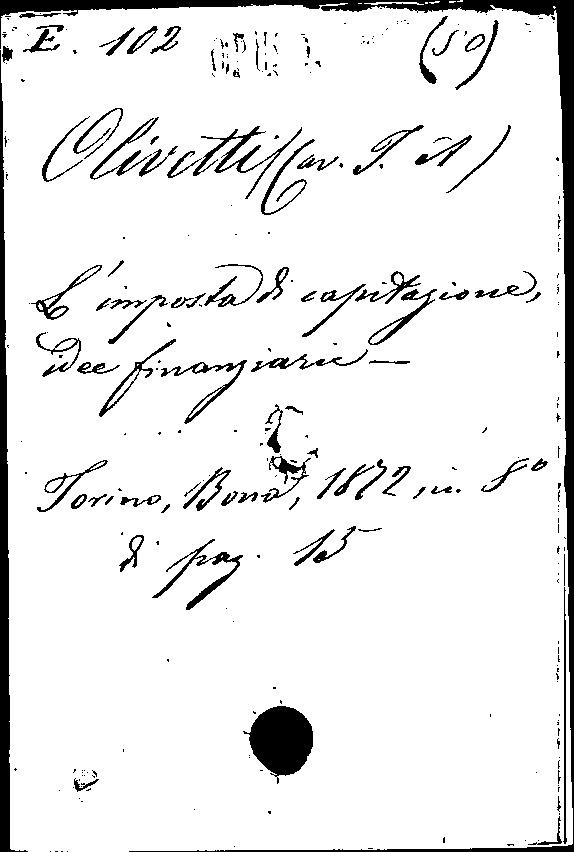 E. 102 OPUS. (50)
Olivetti (Cav. T. A)
L'imposta di capitazione,
idee finanziarie —
Torino, Bona, 1872, in. 8º
di pag. 15